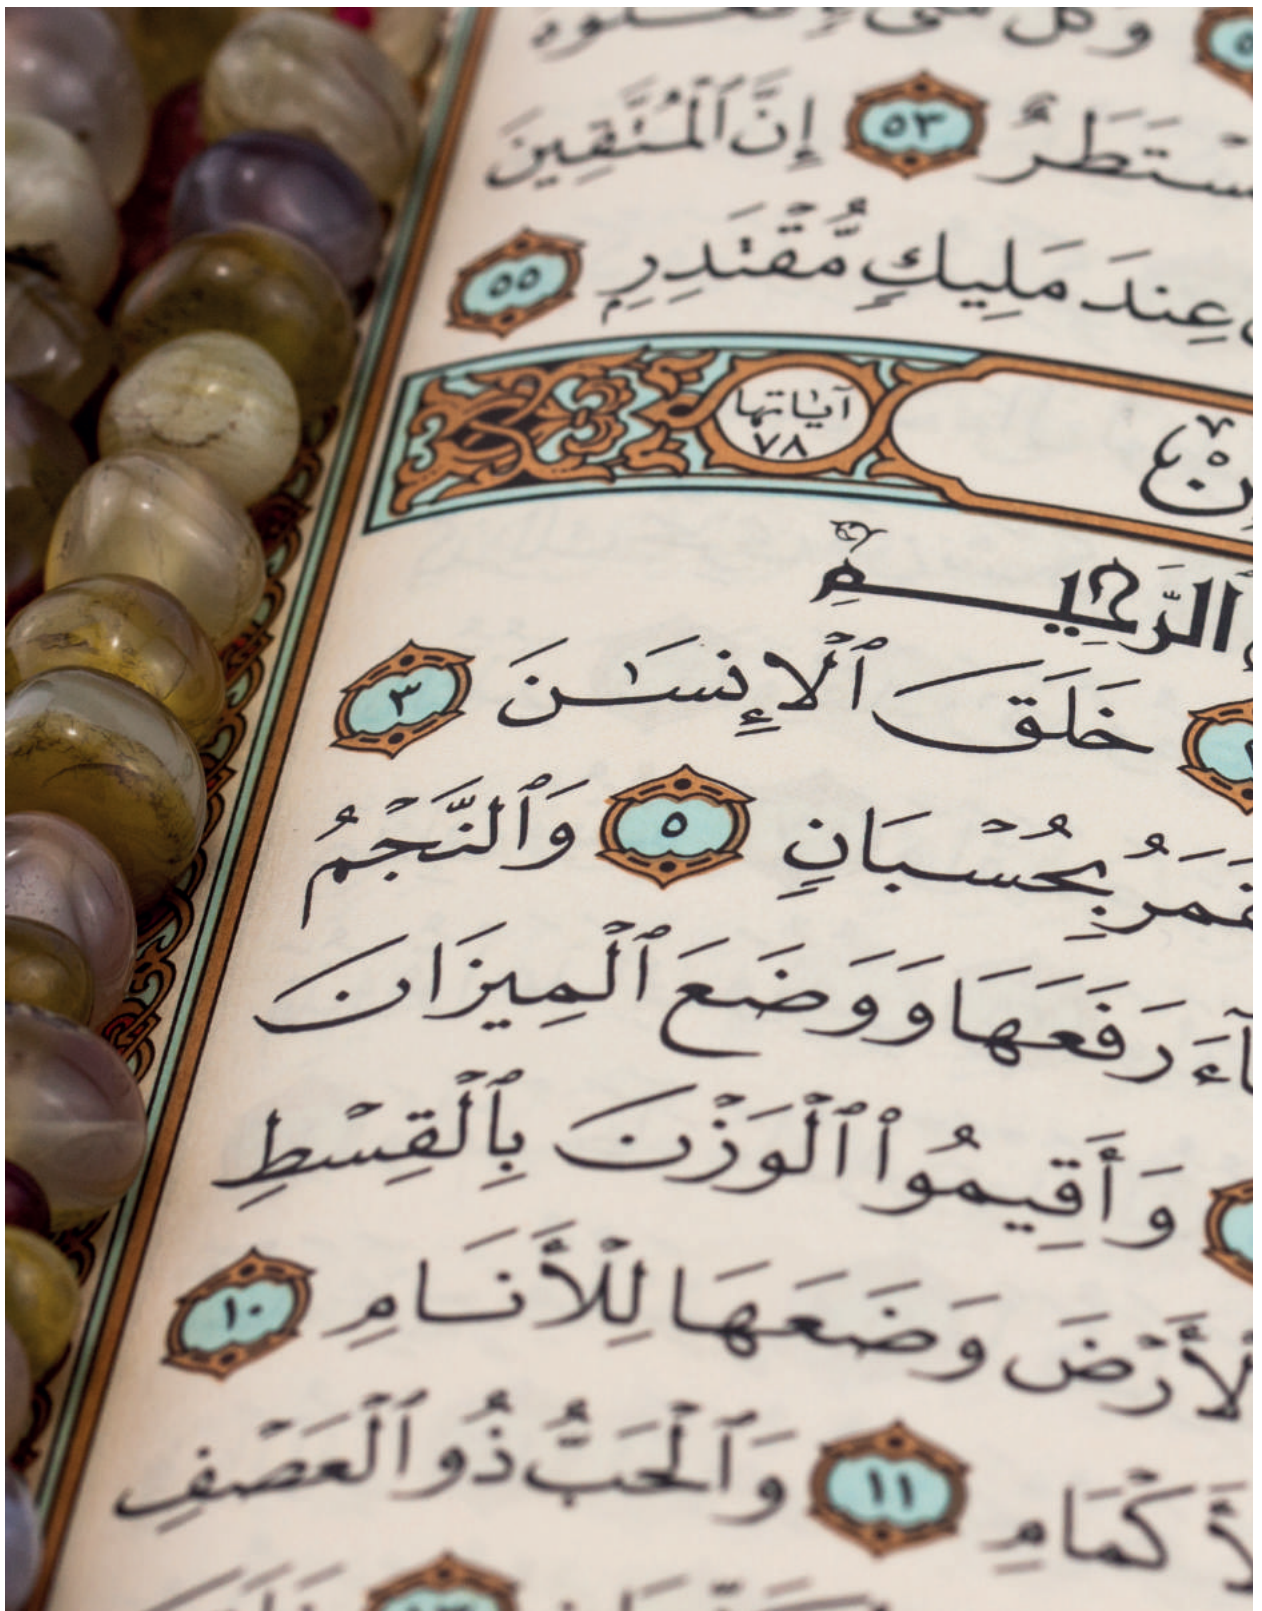 وَكُلُّ شَىْءٍ فَعَلُوهُ
مُّسْتَطَرٌ ٥٣ إِنَّ ٱلْمُتَّقِينَ
عِندَ مَلِيكٍ مُّقْتَدِرٍ ٥٥
آيَاتُهَا ٧٨
ٱلرَّحِيمِ
خَلَقَ ٱلْإِنسَٰنَ ٣
بِحُسْبَانٍ ٥ وَٱلنَّجْمُ
رَفَعَهَا وَوَضَعَ ٱلْمِيزَانَ
وَأَقِيمُوا۟ ٱلْوَزْنَ بِٱلْقِسْطِ
وَضَعَهَا لِلْأَنَامِ ١٠
ٱلْأَكْمَامِ ١١ وَٱلْحَبُّ ذُو ٱلْعَصْفِ